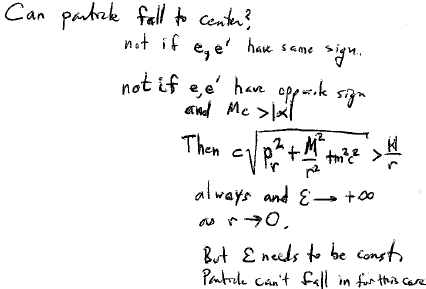 Can particle fall to center?
not if e, e' have same sign.
not if e, e' have opposite sign
and Mc > |α|
Then c√(p_r² + M²/r² + m²c²) > |α|/r
always and ℰ → +∞
as r → 0.
But ℰ needs to be const,
Particle can't fall in for this case